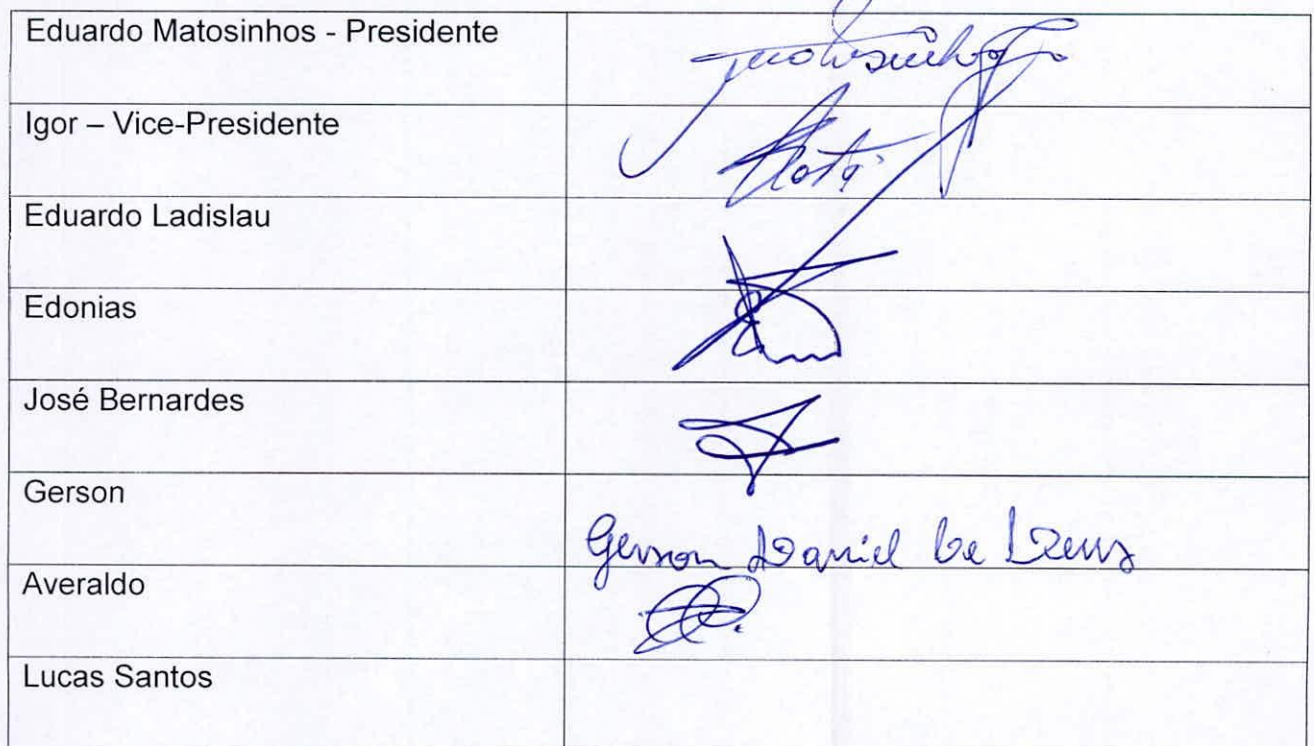 Eduardo Matosinhos - Presidente
Igor – Vice-Presidente
Eduardo Ladislau
Edonias
José Bernardes
Gerson
Gerson Daniel De Deus
Averaldo
Lucas Santos